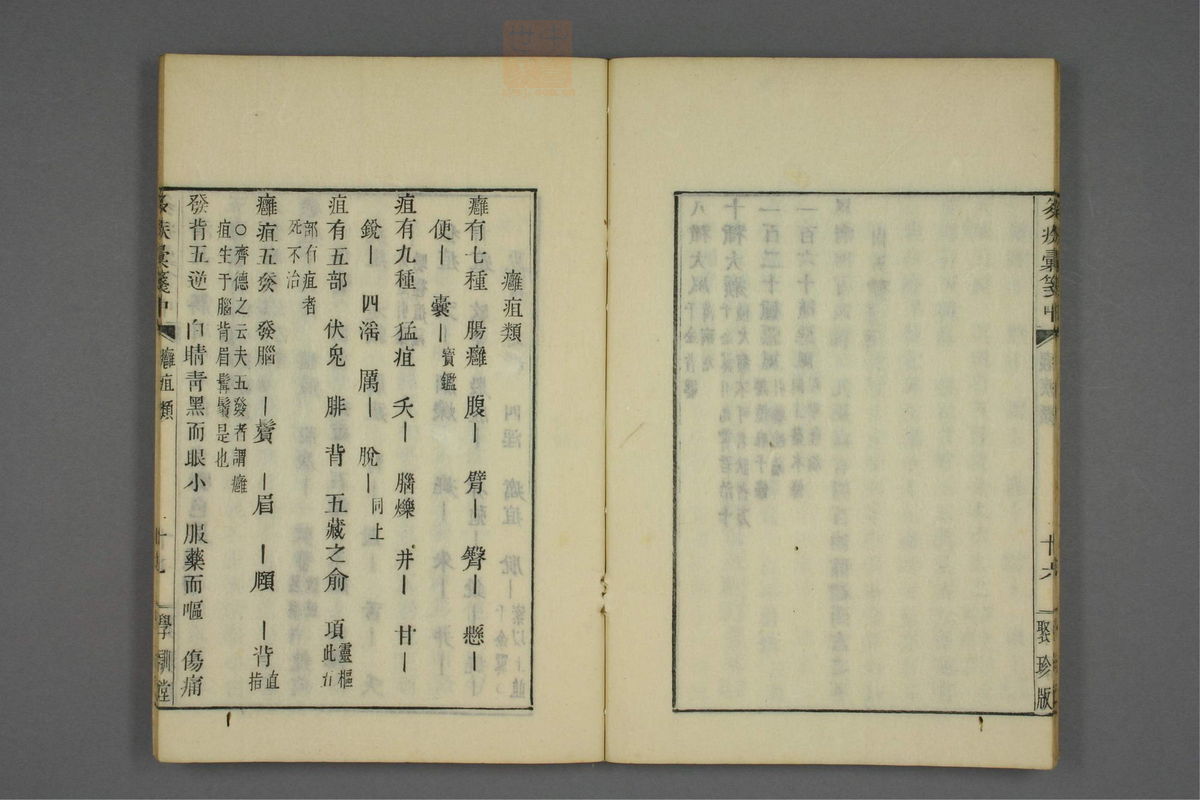 十六
聚珍版
癰疽類
癰有七種 腸癰 腹｜ 臂｜ 臀｜ 懸｜
便｜ 囊｜寶鑑
疽有九種 猛疽 夭｜ 腦爍 井｜ 甘｜
銳｜ 四淫 厲｜ 脫｜同上
疽有五部 伏兔 腓 背 五藏之俞 項靈樞
此五
部有疽者
死不治
癰疽五發 發腦 ｜鬢 ｜眉 ｜頤 ｜背直
指
○齊德之云夫五發者謂癰
疽生于腦背眉鬢鬚是也
發背五逆 白睛靑黑而眼小 服藥而嘔 傷痛
彙箋中
癰疽類
學訓堂